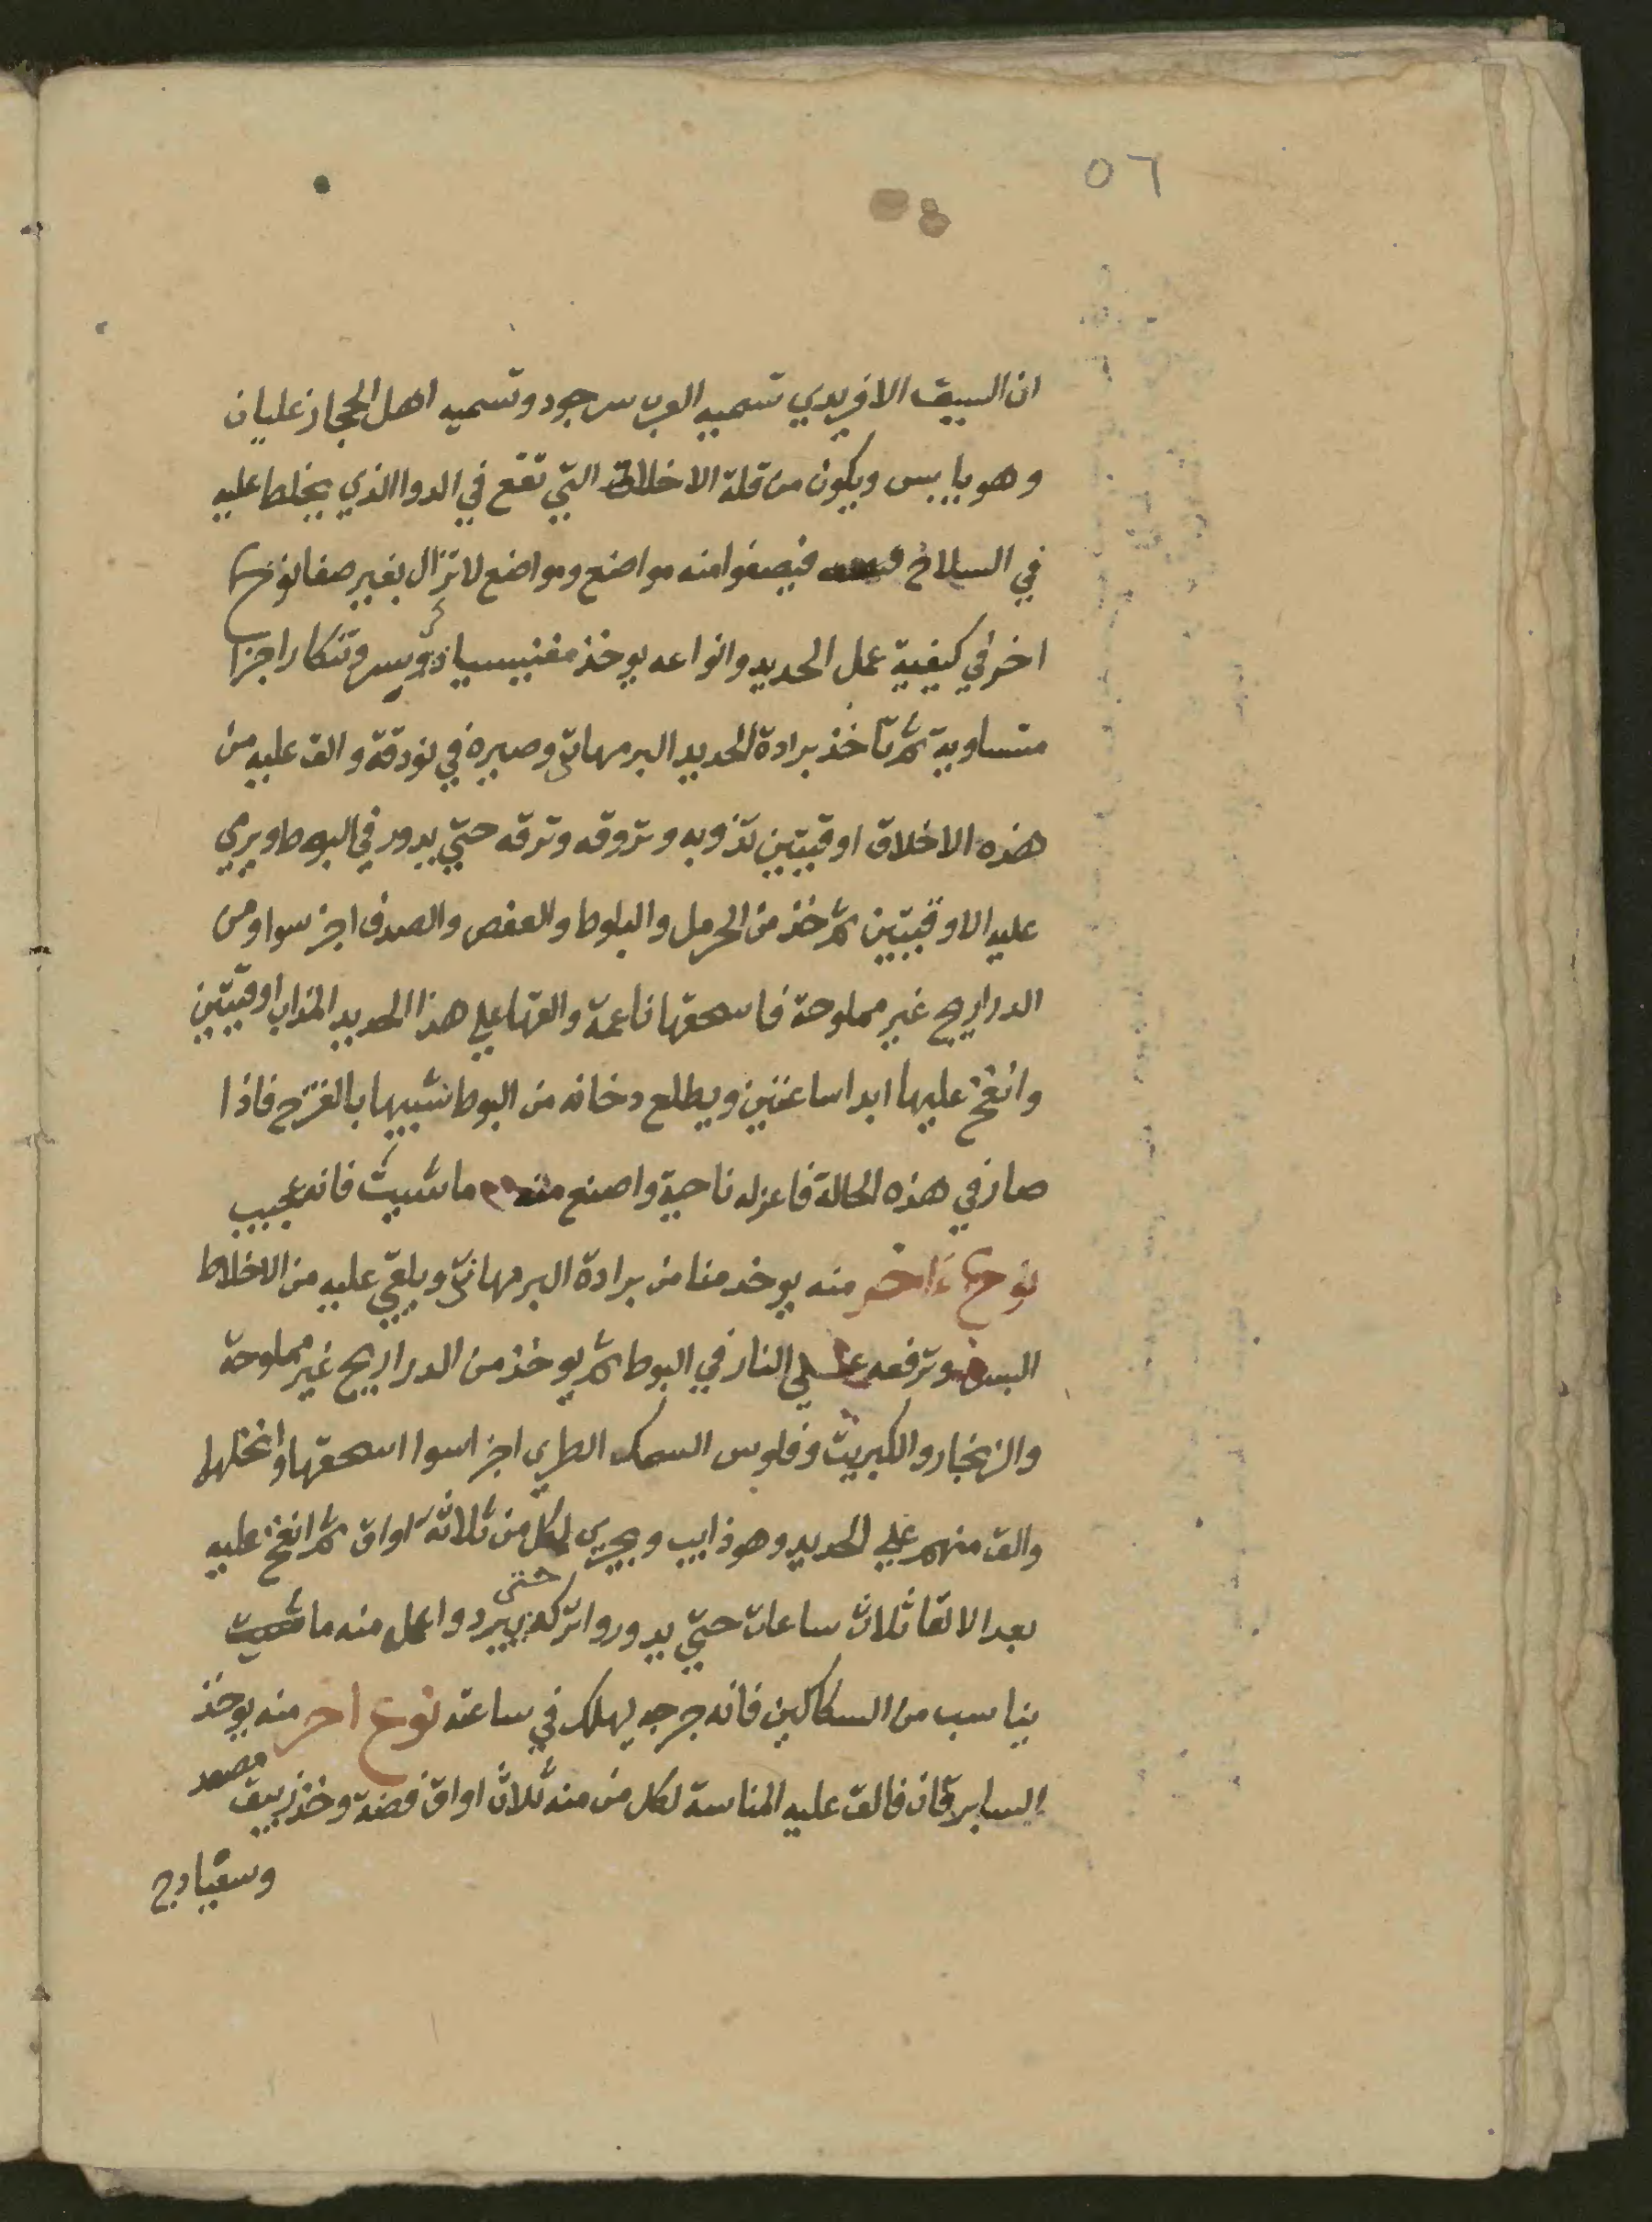 ٥٦
ان السيف الافريدي تسميه العرب سرجود وتسميه اهل الحجاز عليان
وهو يابس ويكون من قلة الاخلاط التي تقع في الدوا الذي يخلط عليه
في السلاح فيصفوا منه مواضع ومواضع لا تزال بغير صفا نوع
اخر في كيفية عمل الحديد وانواعه يوخذ مغنيسيا وتنكار اجزا
متساوية ثم تاخذ برادة الحديد البرمهاني وصيره في بودقة والق عليه من
هذه الاخلاق اوقيتين تذوبه وتروقه وترقه حتي يدور في البوط ويرمي
عليه الاوقيتين ثم خذ من الحرمل والبلوط والعفص والصدف اجز سوا ومن
الدراريح غير مملوحة فاسحقها ناعمة والقها علي هذا الحديد المذاب اوقيتين
وانفخ عليها ابدا ساعتين ويطلع دخانه من البوط شبيها بالقزح فاذا
صار في هذه الحالة فاعزله ناحية واصنع منه ما شييت فانه عجيب
نوع ءاخر منه يوخد منا من برادة البرمهاني ويلقي عليه من الاخلاط
وترفعه علي النار في البوط ثم يوخذ من الدراريح غير مملوحة
والزنجار والكبريت وفلوس السمك الطري اجزا سوا اسحقها وانخلها
والق منهم علي الحديد وهو ذايب ويجري لكل من ثلاثة اواق ثم انفخ عليه
بعد الالقا ثلاث ساعات حتي يدور واتركه حتى يبرد واعمل منه ما شيت
يناسب من السكاكين فانه جرحه يهلك في ساعته نوع اخر منه يوخذ
السابرقان فالق عليه المناسة لكل من منه ثلاث اواق فضة وخذ زيبق مصعد